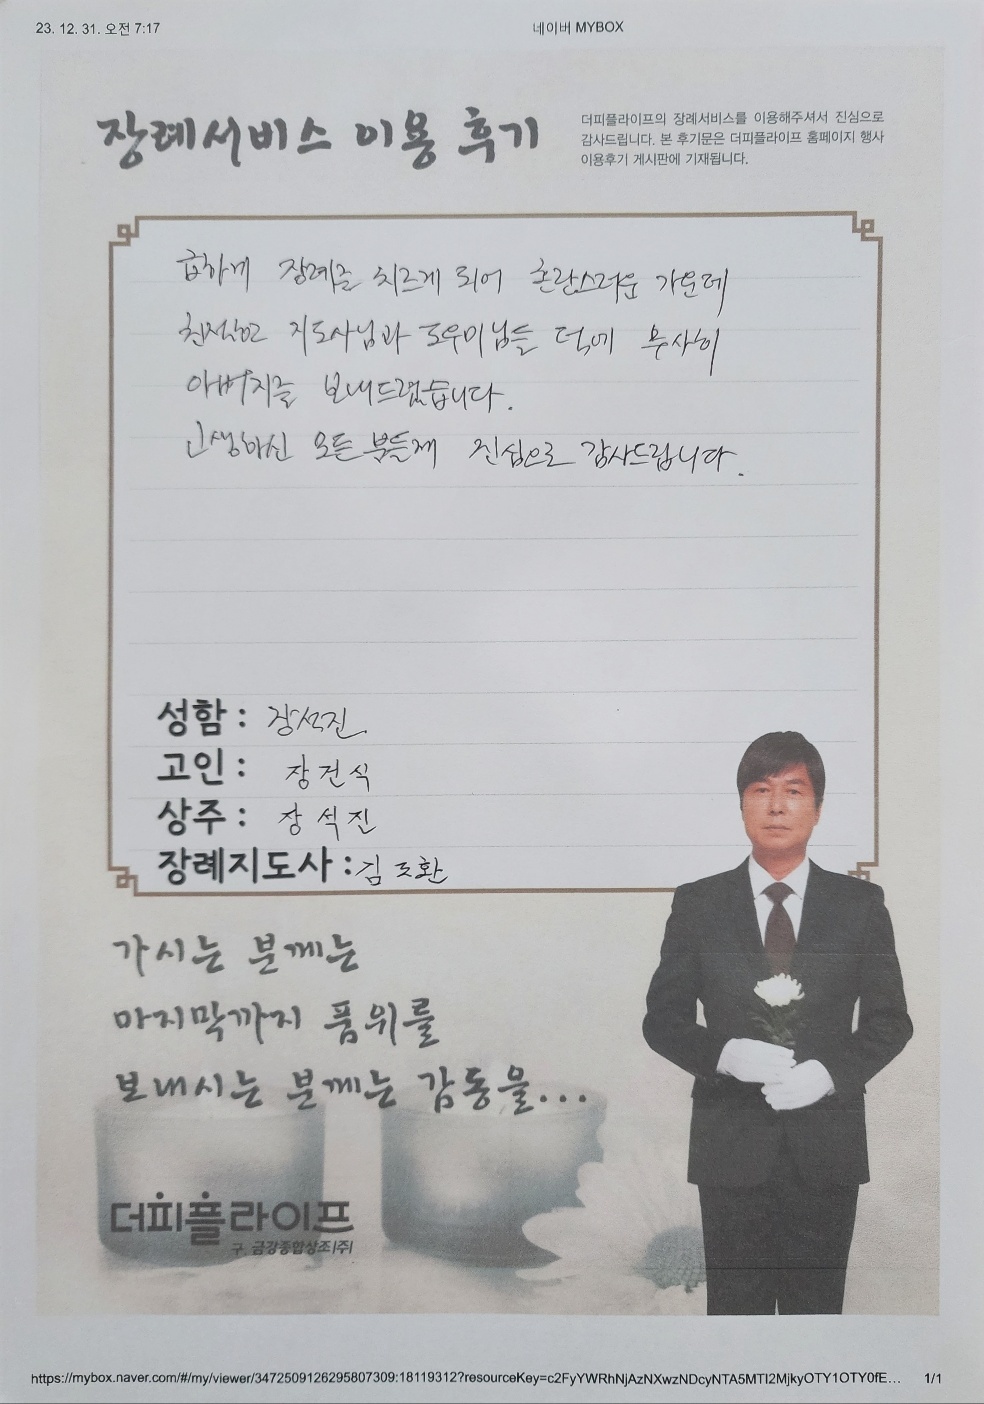 23. 12. 31. 오전 7:17
네이버 MYBOX
장례서비스 이용 후기
더피플라이프의 장례서비스를 이용해주셔서 진심으로
감사드립니다. 본 후기문은 더피플라이프 홈페이지 행사
이용후기 게시판에 기재됩니다.
급하게 장례를 치르게 되어 혼란스러운 가운데
친절한 지도사님과 도우미님들 덕에 무사히
아버지를 보내드렸습니다.
고생하신 모든 분들께 진심으로 감사드립니다.
성함 : 장석진
고인 : 장건식
상주 : 장석진
장례지도사 : 김 환
가시는 분께는
마지막까지 품위를
보내시는 분께는 감동을...
더피플라이프
구. 금강종합상조(주)
https://mybox.naver.com/#/my/viewer/3472509126295807309:18119312?resourceKey=c2FyYWRhNjAzNXwzNDcyNTA5MTI2MjkyOTY1OTY0fE...
1/1